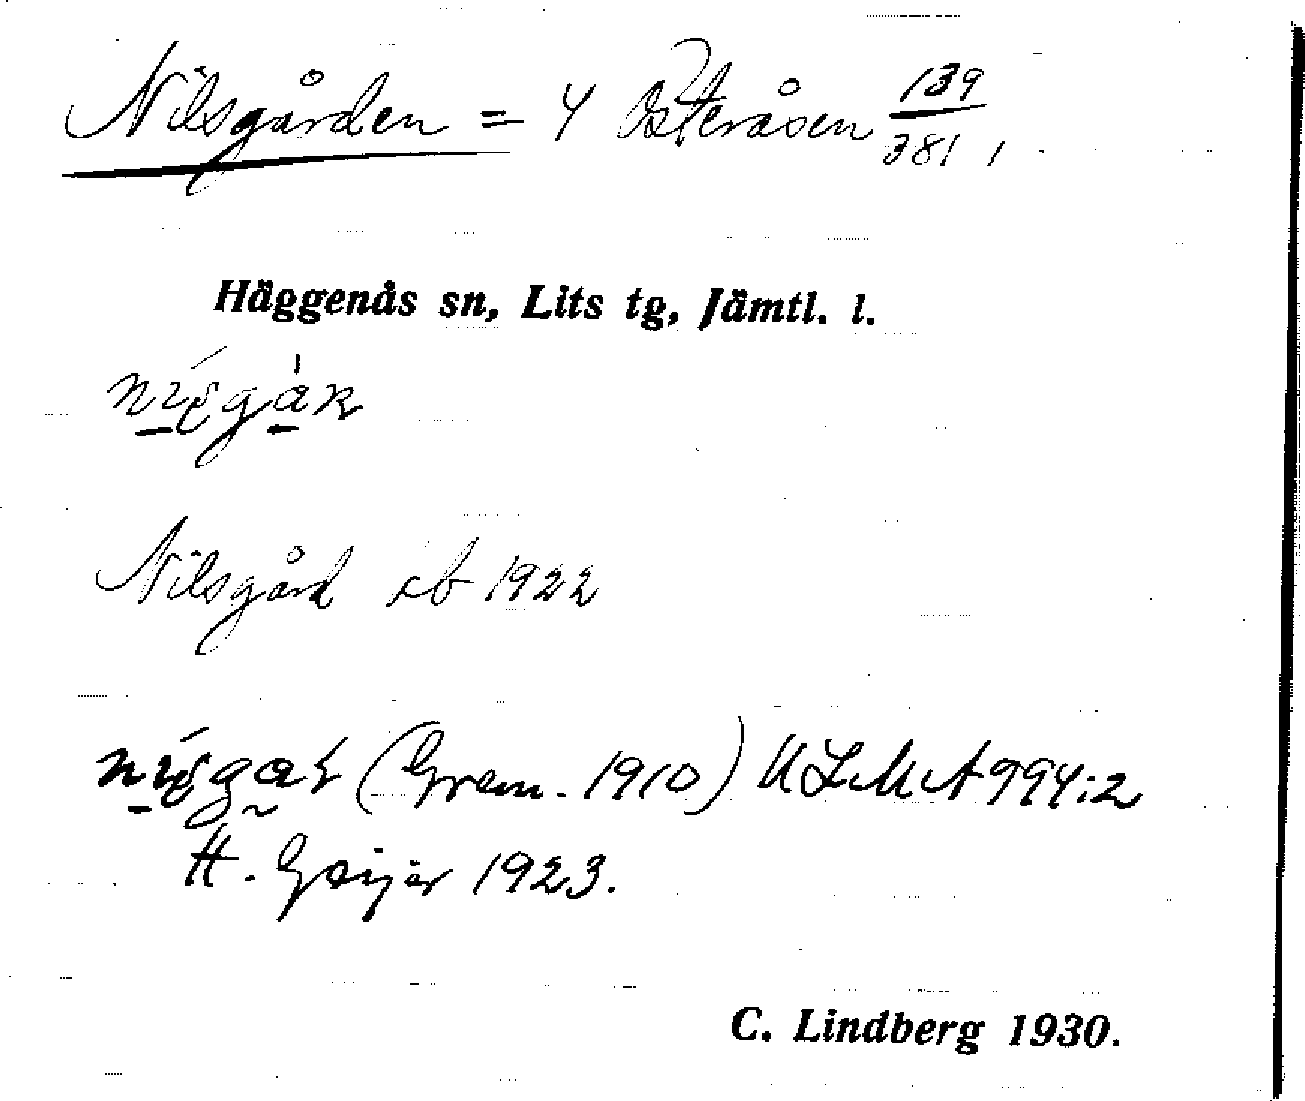 Nilsgården = 4 Österåsen 139/381
Häggenås sn, Lits tg, Jämtl. l.
Nilsgård Jb 1922
(Gren. 1910) ULMA 994:2
H. Geijer 1923.
C. Lindberg 1930.